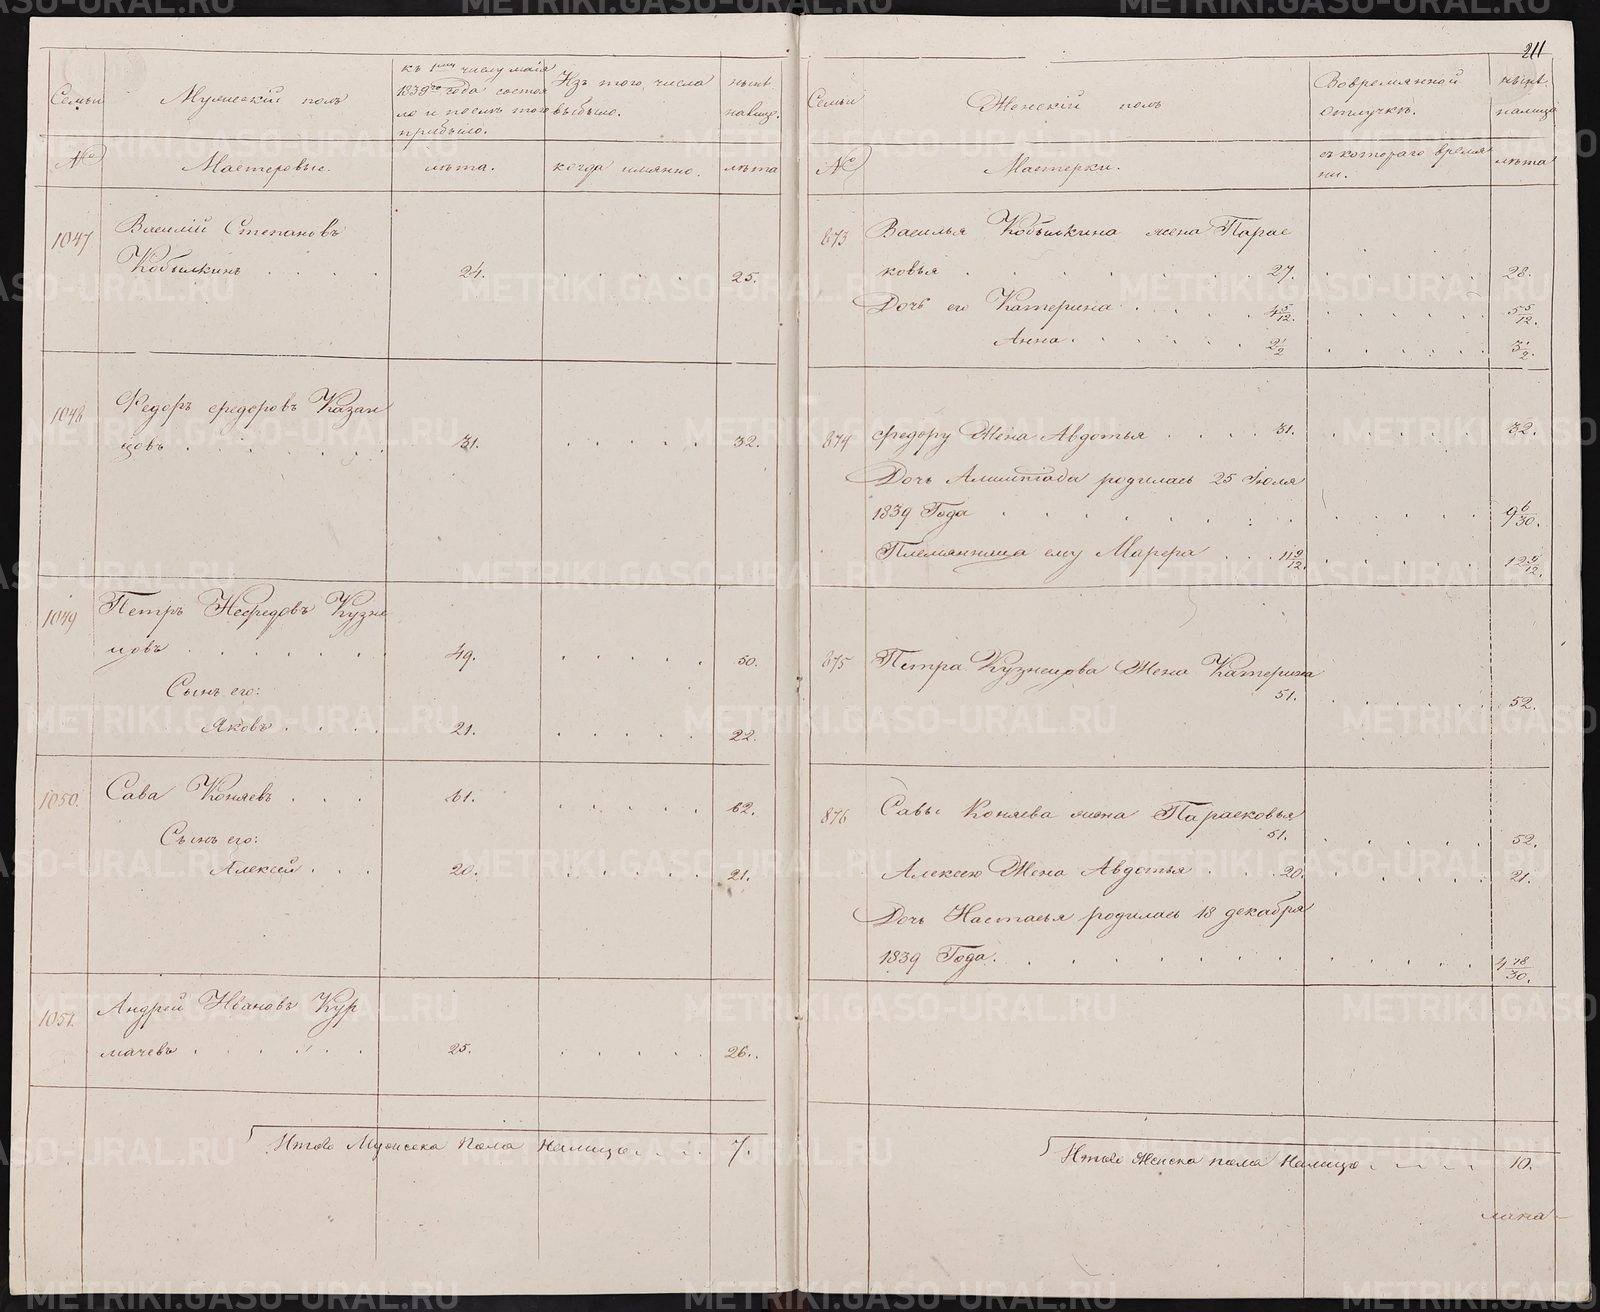 211
Семьи
Мужескій полъ
къ 1му числу маія
1839го года состоя
ло и послѣ того
прибыло.
Изъ того числа
выбыло.
нынѣ
налицо.
№
Мастеровые.
лѣта.
когда имянно.
лѣта
1047
Василій Степановъ
Кобылкинъ . . . . 24. . . . . . 25.
1048
Федоръ Федоровъ Казан
цовъ . . . . . . . 31. . . . . . 32.
1049
Петръ Нефедовъ Кузне
цовъ . . . . . . 49. . . . . . 50.
Сынъ его:
Яковъ . . . . 21. . . . . . 22.
1050.
Сава Коняевъ . . . 61. . . . . . 62.
Сынъ его:
Алексей . . . 20. . . . . . 21.
1051.
Андрей Ивановъ Кур
мачевъ . . . . . . 25. . . . . . 26.
Итого Мужеска Пола Налицо . . . . 7.
Семьи
Женскій полъ
Вовремянной
отлучкѣ.
нынѣ
налицо
№
Мастерки.
съ котораго время
ни.
лѣта
873
Василья Кобылкина жена Парас
ковья . . . . . . . 27. . . . . . . 28.
Дочь его Катерина . . . . . 4 5/12. . . . . . . 5 5/12.
Анна . . . . . . 2 1/2 . . . . . 3 1/2.
874
Федору Жена Авдотья . . . . 31. . . . . . 32.
Дочь Алимпіада родилась 25 Іюля
1839 Года . . . . . . . . . . . 9 6/30.
Племянница ему Марфа . . . 11 9/12. . . . . . 12 9/12.
875
Петра Кузнецова Жена Катерина
51. . . . . . . 52.
876
Савы Коняева жена Парасковья
51. . . . . . 52.
Алексею Жена Авдотья . . . . 20. . . . . . 21.
Дочь Настасья родилась 18 декабря
1839 Года. . . . . . . . . . . 4 18/30.
Итого Женска пола Налицо . . . . . 10.